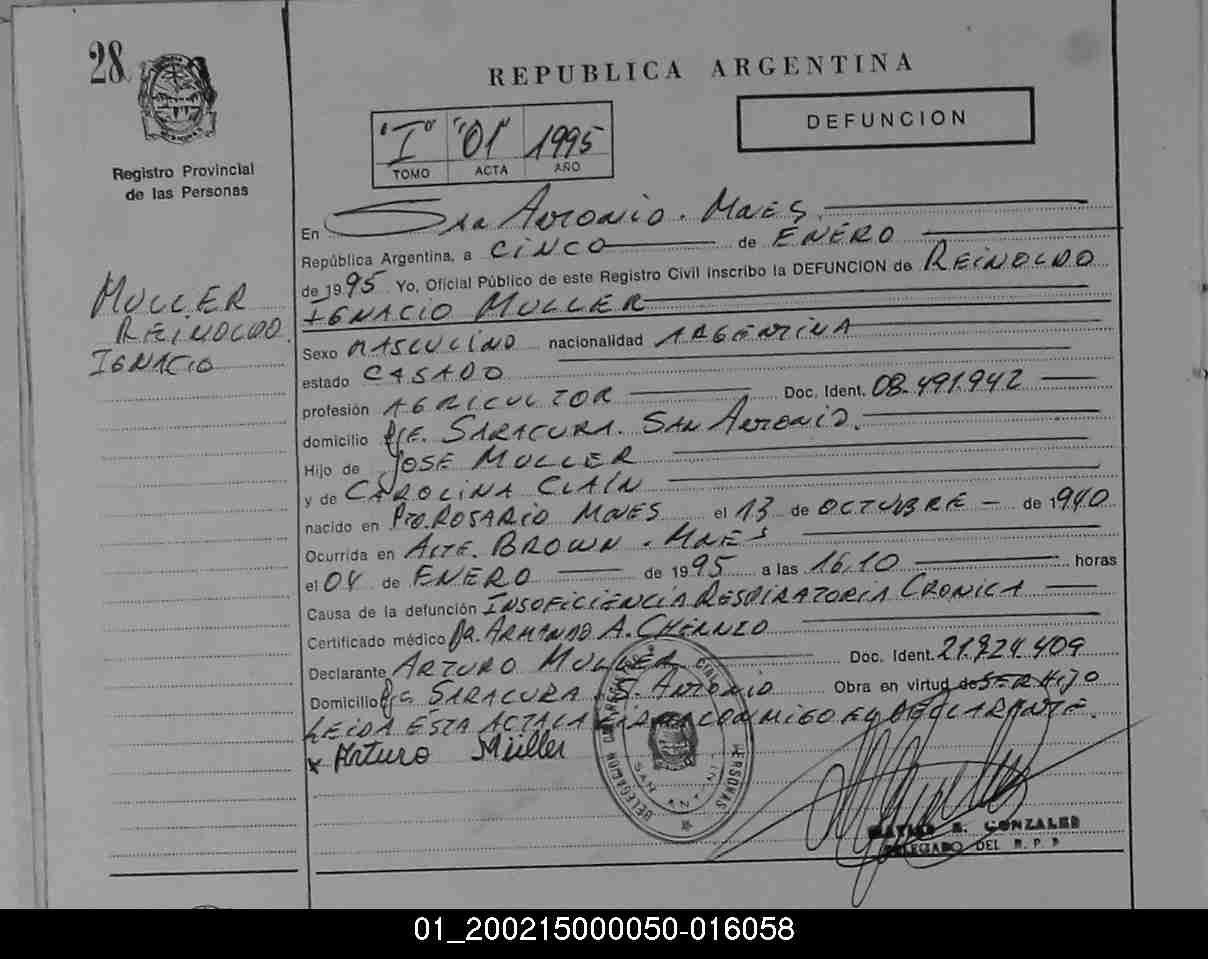 28
REPUBLICA ARGENTINA
"I" "01" 1995
TOMO ACTA AÑO
DEFUNCION
Registro Provincial
de las Personas
MULLER
REINOLDO
IGNACIO
En San Antonio. Mnes.
República Argentina, a CINCO de ENERO
de 1995 Yo, Oficial Público de este Registro Civil inscribo la DEFUNCION de REINOLDO
IGNACIO MULLER
Sexo MASCULINO nacionalidad ARGENTINA
estado CASADO
profesión AGRICULTOR Doc. Ident. 08.491.942
domicilio Pje. SARACURA. SAN ANTONIO.
Hijo de JOSE MULLER
y de CAROLINA CLAIN
nacido en Pto. ROSARIO MNES el 13 de OCTUBRE de 1940
Ocurrida en ALTE. BROWN. MNES
el 04 de ENERO de 1995 a las 16,10 horas
Causa de la defunción INSOFICIENCIA RESPIRATORIA CRONICA
Certificado médico DR. ARMANDO A. CHERNIO
Declarante ARTURO MULLER Doc. Ident. 21.724.409
Domicilio Pje SARACURA. S. ANTONIO Obra en virtud de SER HIJO
LEIDA ESTA ACTA LA FIRMA CONMIGO EL DECLARANTE.
x Arturo Müller
DELEGACION PERSONAS
SAN ANTONIO
GONZALES
DELEGADO DEL R. P. P
01_200215000050-016058